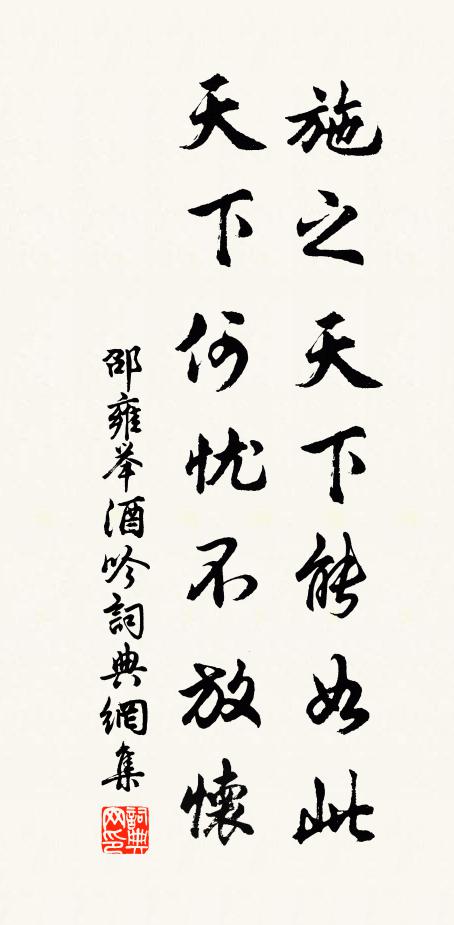 施之天下能如此
天下何忧不放懷
邵雍举酒吟詞典網集
詞典
网印